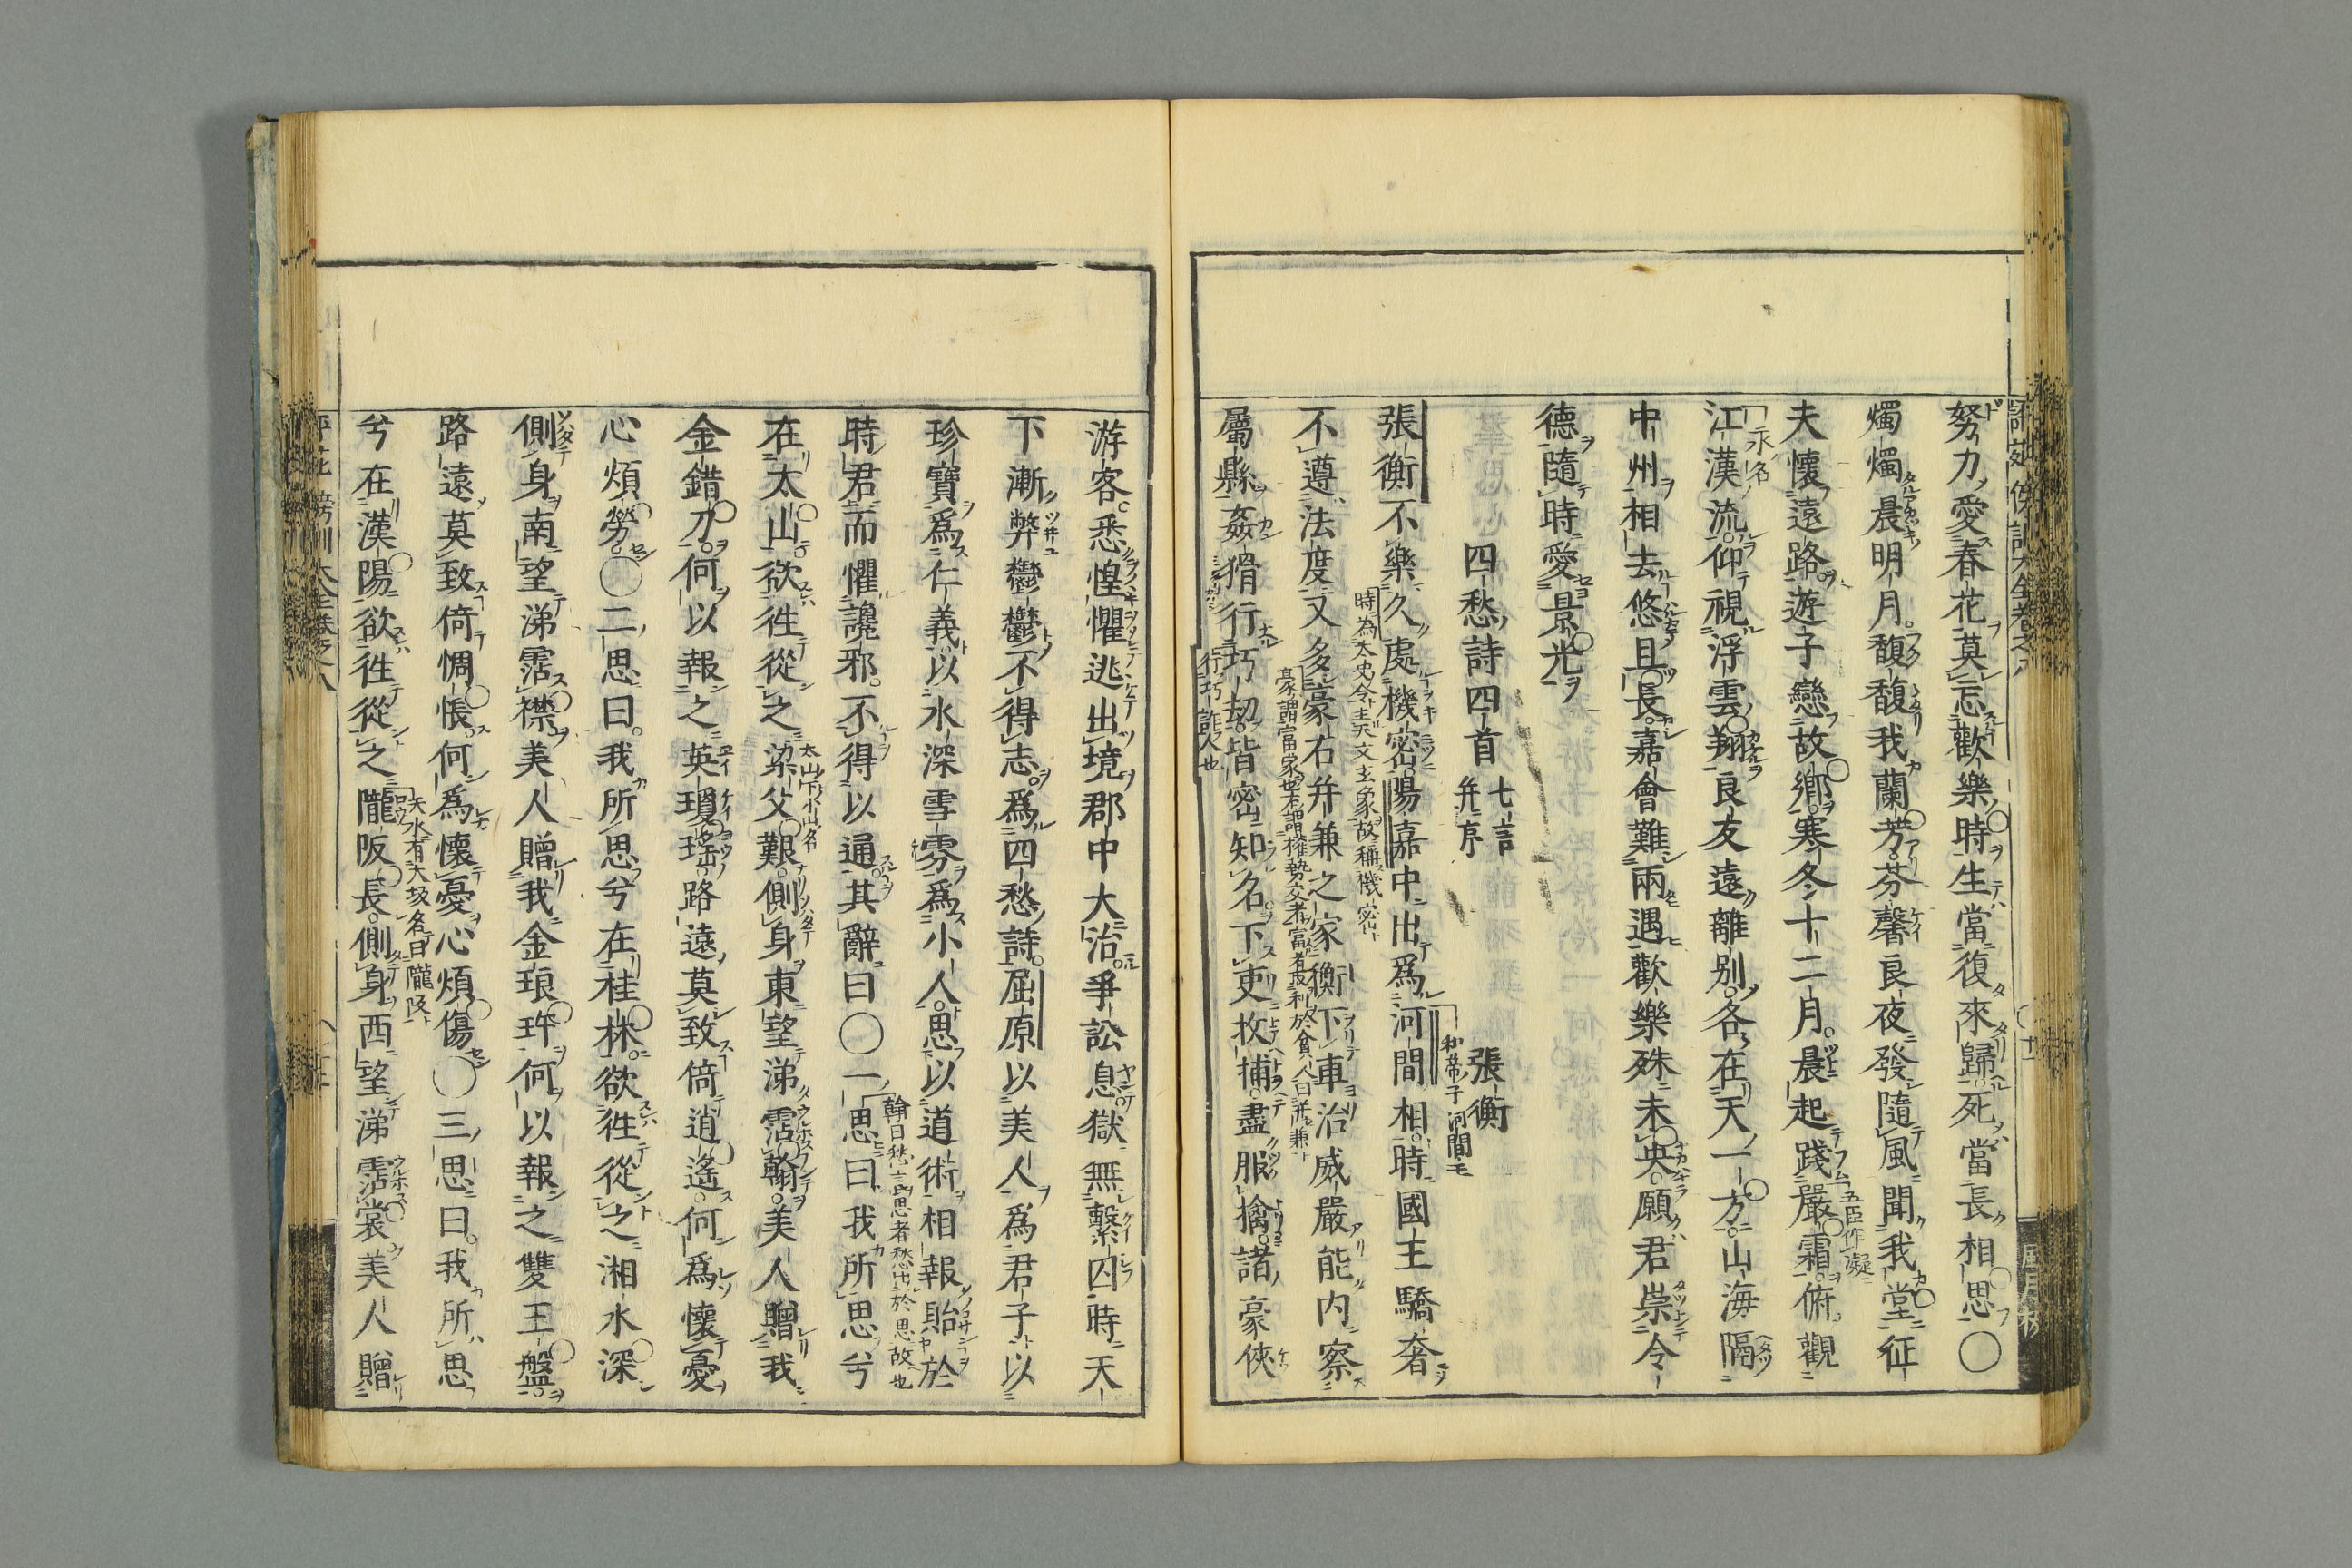 努力愛春花莫忘歡樂時生當復來歸死當長相思〇
燭燭晨明月馥馥我蘭芳芬馨良夜發隨風聞我堂征
夫懷遠路遊子戀故鄉寒冬十二月晨起踐嚴霜俯觀
五臣作凝
江漢流仰視浮雲翔良友遠離別各在天一方山海隔
中州相去悠且長嘉會難兩遇歡樂殊未央願君崇令
德隨時愛景光
四愁詩四首 七言 并序 張衡
張衡不樂久處機密陽嘉中出爲河間相時國王驕奢
和帝子河間王
時為太史令主天文玄象故稱機密
不遵法度又多豪右并兼之家衡下車治威嚴能內察
屬縣姦猾行巧劫皆密知名下吏收捕盡服擒諸豪俠
行巧詐人也
游客悉惶懼逃出境郡中大治爭訟息獄無繫囚時天
下漸弊鬱鬱不得志爲四愁詩屈原以美人爲君子以
珍寶爲仁義以水深雪雰爲小人思以道術相報貽於
時君而懼讒邪不得以通其辭曰〇一思曰我所思兮
翰曰愁言思者愁出於思故也
在太山欲徃從之梁父艱側身東望涕霑翰美人贈我
太山下小山名
金錯刀何以報之英瓊瑤路遠莫致倚逍遙何爲懷憂
心煩勞〇二思曰我所思兮在桂林欲徃從之湘水深
側身南望涕霑襟美人贈我金琅玕何以報之雙玉盤
路遠莫致倚惆悵何爲懷憂心煩傷〇三思曰我所思
兮在漢陽欲徃從之隴阪長側身西望涕霑裳美人贈
天水有大坂名曰隴阪